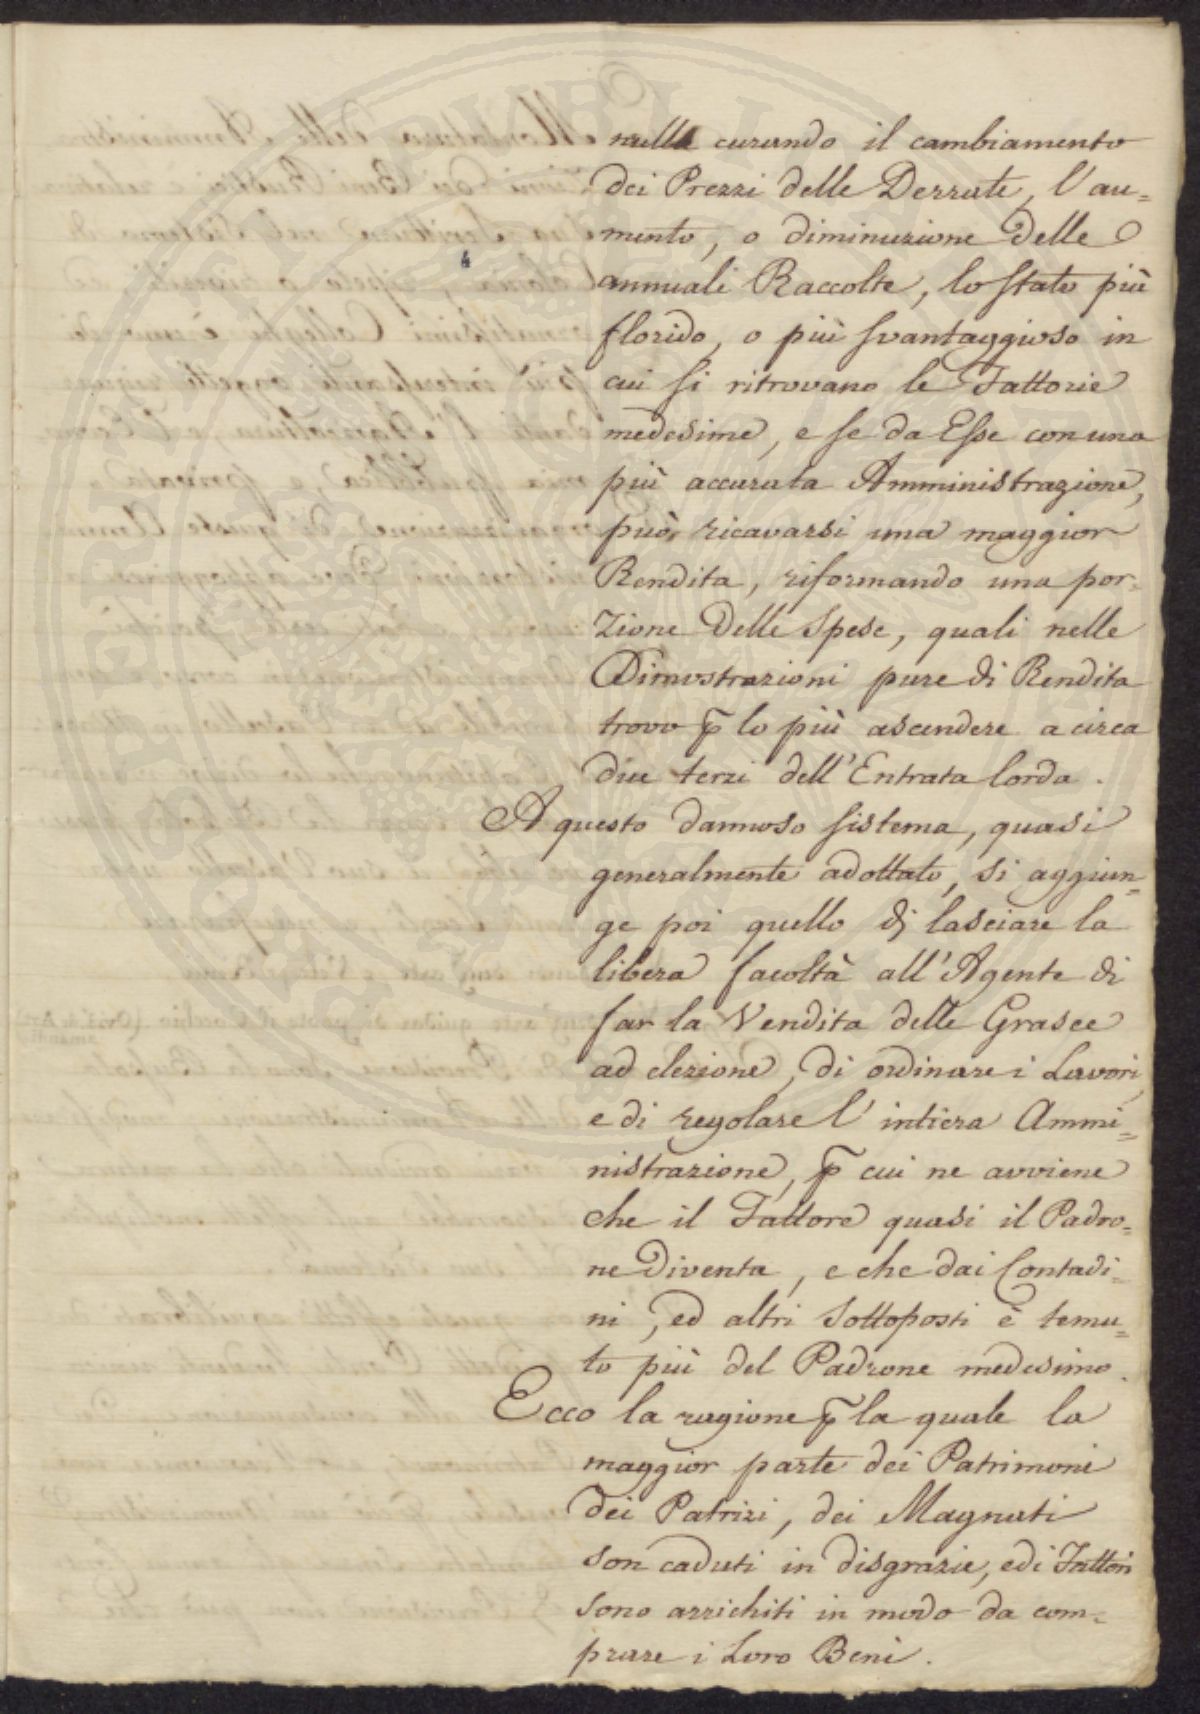 nulla curando il cambiamento
dei Prezzi delle Derrate, l'au=
mento, o diminuzione delle
annuali Raccolte, lo stato più
florido, o più svantaggioso in
cui si ritrovano le Fattorie
medesime, e se da Esse con una
più accurata Amministrazione,
può, ricavarsi una maggior
Rendita, riformando una por=
zione delle Spese, quali nelle
Dimostrazioni pure di Rendita
trovo p lo più ascendere a circa
due terzi dell'Entrata lorda.
A questo dannoso sistema, quasi
generalmente adottato, si aggiun=
ge poi quello di lasciare la
libera facoltà all'Agente di
far la Vendita delle Grasce
ad elezione, di ordinare i Lavori,
e di regolare l'intiera Ammi=
nistrazione, p cui ne avviene
che il Fattore quasi il Padro=
ne diventa, e che dai Contadi=
ni, ed altri Sottoposti è temu=
to più del Padrone medesimo.
Ecco la ragione p la quale la
maggior parte dei Patrimoni
dei Patrizi, dei Magnati
son caduti in disgrazie, ed i Fattori
sono arrichiti in modo da com=
prare i Loro Beni.